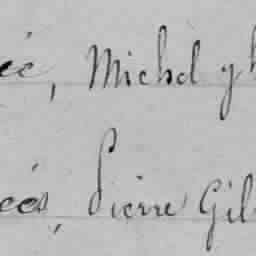 ée, Michel
ées, Pierre Gil